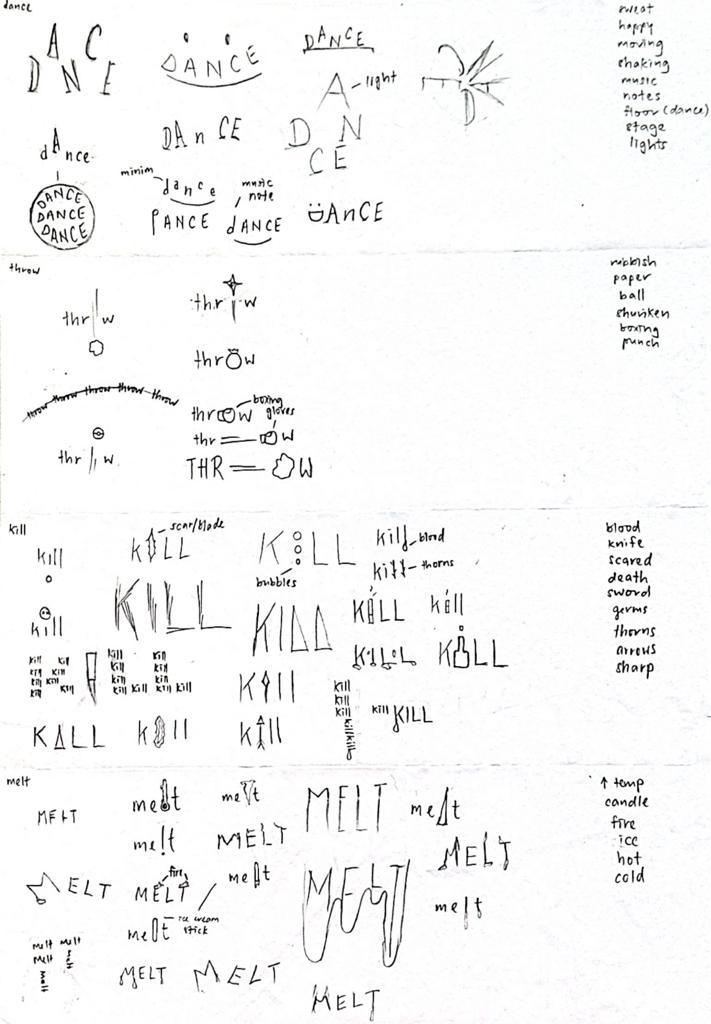 dance
DANCE
DANCE
DANCE
light
DANCE
dAnce
DAnCE
minim
dance
music
note
DANCE
DANCE
DANCE
PANCE
dANCE
ÜAnCE
sweat
happy
moving
shaking
music
notes
floor (dance)
stage
lights
throw
thr w
thr w
thrOw
throw throw throw throw throw
boxing
gloves
thrOW
thr W
thr w
THR OW
rubbish
paper
ball
shuriken
boxing
punch
kill
kill
scar/blade
KILL
KILL
bubbles
kill
blood
kill
thorns
kill
KILL
KILL
KILL
kill
KILL
KILL
kill kill
kill kill
kill kill
kill kill
kill
kill kill
kill kill
kill kill
kill kill kill
KIll
kill
kill
kill
killkilly
kill KILL
KALL
kill
kill
blood
knife
scared
death
sword
germs
thorns
arrows
sharp
melt
MELT
melt
melt
MELT
melt
me!t
MELT
MELT
MELT
fire
MELT
melt
MELT
melt
ice cream
stick
melt
melt melt
melt melt
melt
MELT
MELT
MELT
↑ temp
candle
fire
ice
hot
cold